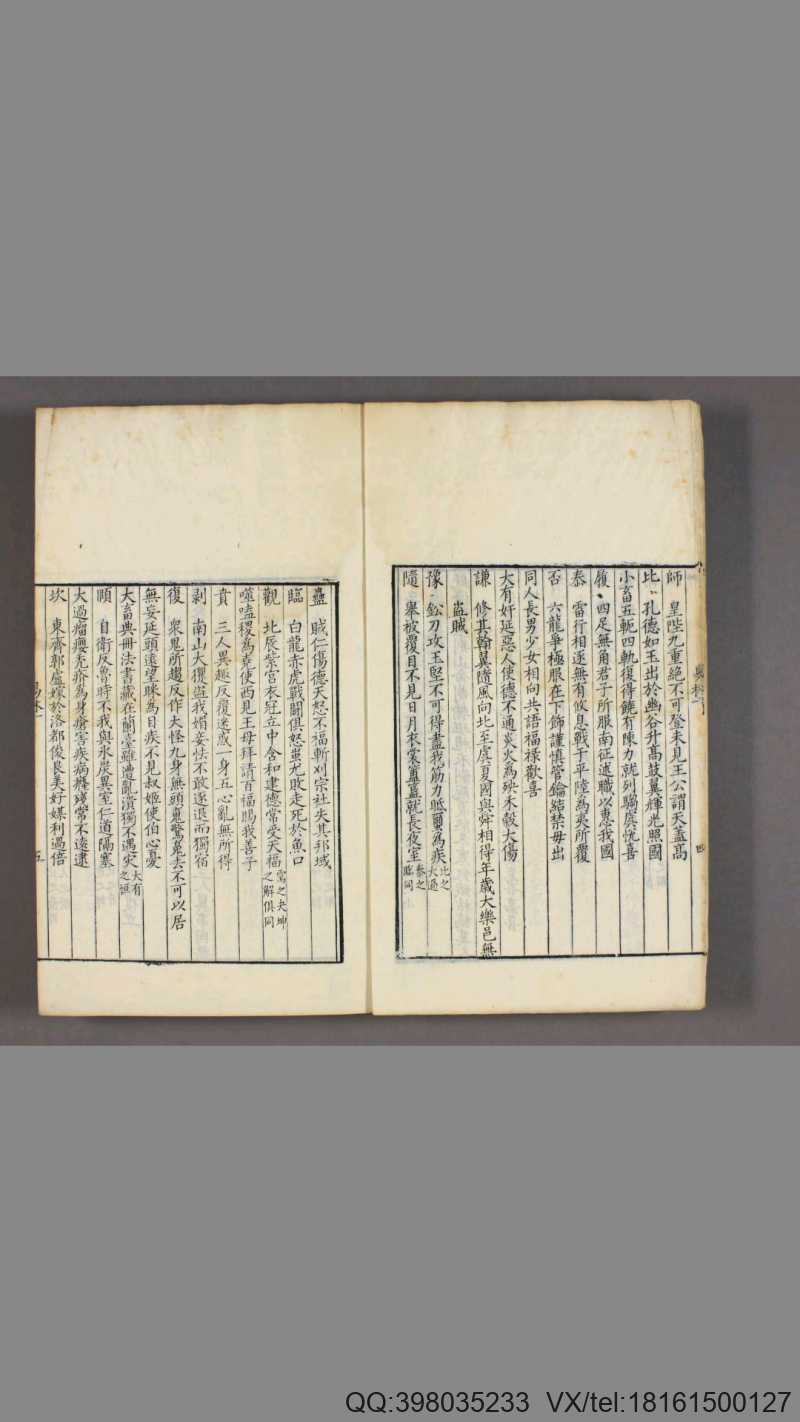 師 皇陛九重絕不可登未見王公謂天蓋高
比 孔德如玉出於幽谷升高鼓翼輝光照國
小畜五軛四軌復得饒有陳力就列騶虞恱喜
履 四足無角君子所服南征述職以惠我國
泰 當行相逐無有攸息戰于平陸為夷所覆
否 六龍爭極服在下飾謹慎管鑰結禁毋出
同人長男少女相向共語福祿歡喜
大有奸延惡人使德不通炎火為殃禾穀大傷
謙 修其翰翼隨風向北至虞夏國與舜相得年歲大樂邑無
盜賊
豫 鈆刀攻玉堅不可得盡我筋力胝𠅤為疾比之大過
隨 舉被覆目不見日月衣裳簠簋就長夜室泰之臨同
四
蠱 賊仁傷德天怒不福斬刈宗社失其邦域
臨 白龍赤虎戰鬭俱怒蚩尤敗走死於魚口
觀 北辰紫宮衣冠立中含和建德常受天福需之夬坤之解俱同
噬嗑稷為堯使西見王母拜請百福賜我善子
賁 三人異趣反覆迷惑一身五心亂無所得
剥 南山大玃盜我媚妾怯不敢逐退而獨宿
復 衆鬼所趨反作大怪九身無頭䰟驚魄去不可以居
無妄延頸遠望眯為目疾不見叔姬使伯心憂
大畜典冊法書藏在蘭臺雖遭亂潰獨不遇灾大有之恒
頤 自衛反魯時不我與氷炭異室仁道隔塞
大過瘤癭禿疥為身瘡害疾病癃殘常不遠逮
坎 東齊郭盧嫁於洛都俊良美好媒利過倍
五
QQ:398035233 VX/tel:18161500127